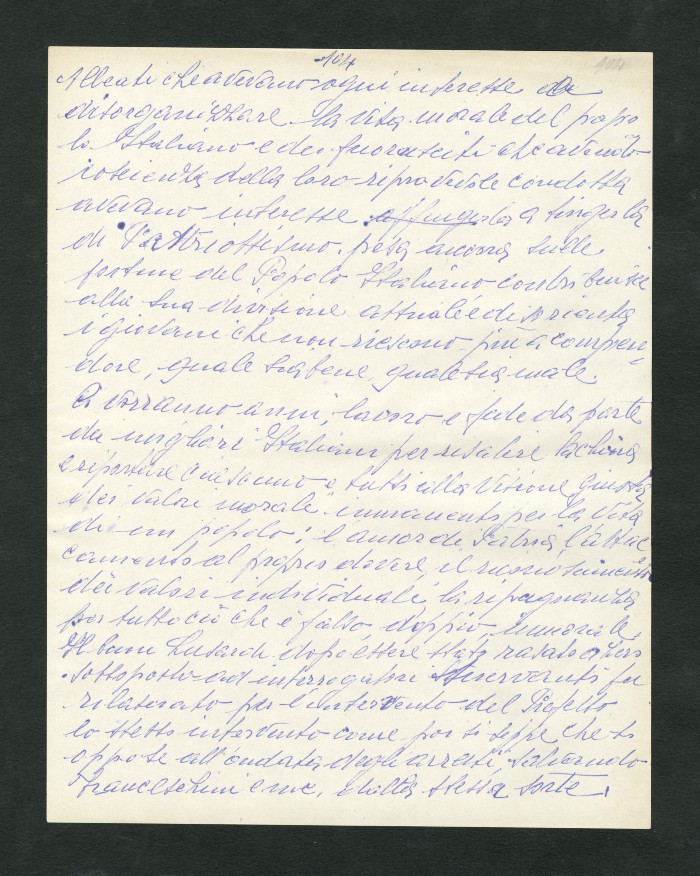 104
104
Alleati che avevano ogni interesse a
disorganizzare la vita morale del popo
lo Italiano e dei fuorusciti che avendo
coscienza della loro reprovevole condotta
avevano interesse a tingerla
di Patriottismo, pesa ancora sulle
fortune del Popolo Italiano contribuisce
alla sua divisione attuale e disorienta
i giovani che non riescono più a compren-
dere, quale sia bene, quale sia male.
Ci vorranno anni, lavoro e fede da parte
dei migliori Italiani per risalire la china
e riportare ciascuno e tutti alla visione giusta
dei valori morali immanenti per la vita
di un popolo: l'amor di Patria, l'attac
camento al proprio dovere, il riconoscimento
dei valori individuali, la ripugnanza
per tutto ciò che è falso, doppio, immorale.
Il buon Lusardi dopo essere stato rasato a zero
sottoposto ad interrogatori snervanti fu
rilasciato per l'intervento del Prefetto
lo stesso intervento come poi si seppe che si
oppose all'ondata degli arresti, salvando
Franceschini e me, dalla stessa sorte.